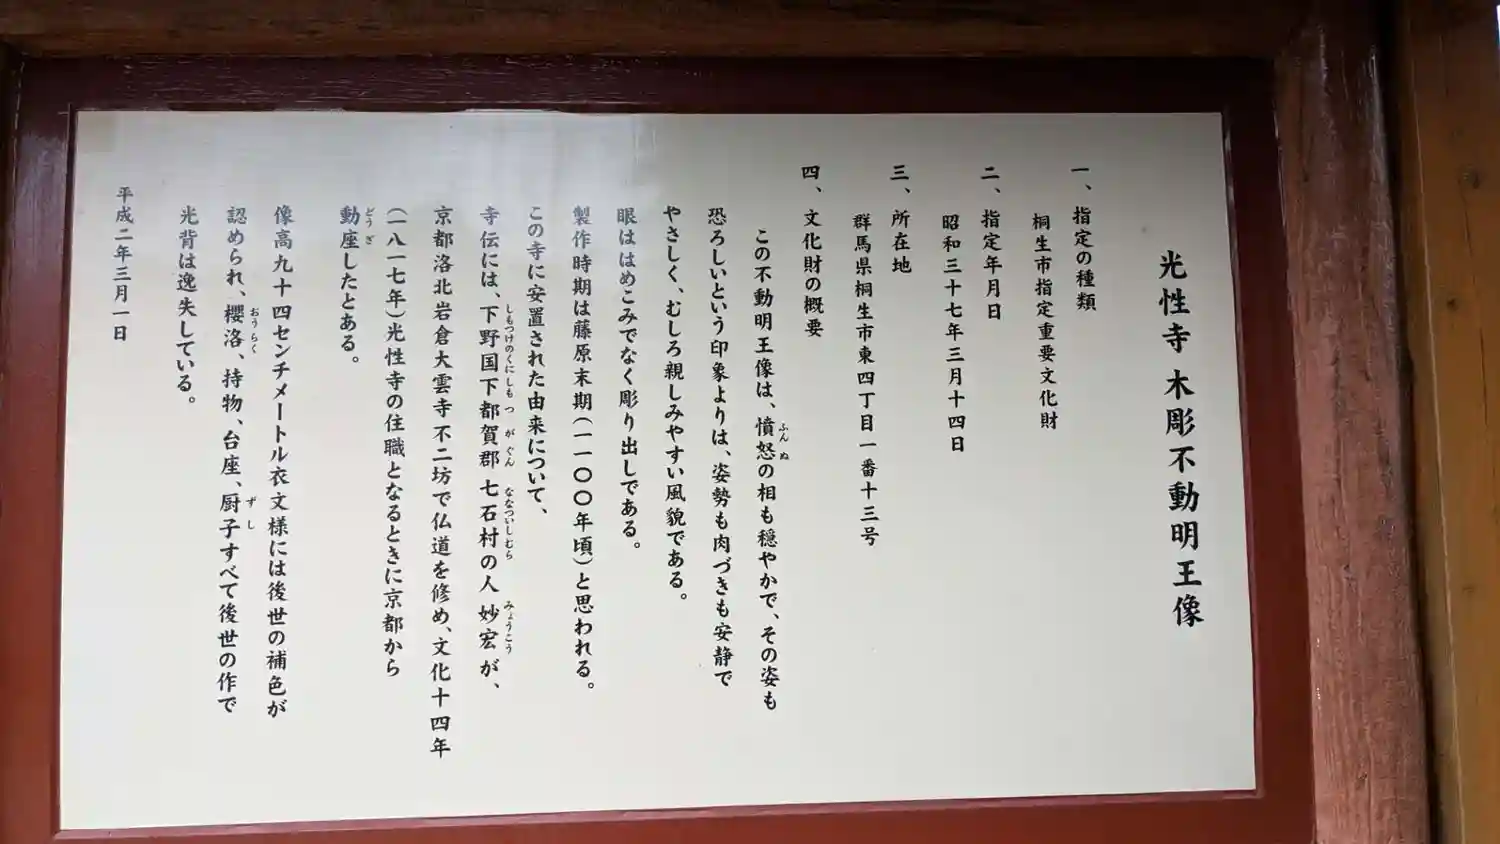 光性寺 木彫不動明王像
一、指定の種類
桐生市指定重要文化財
二、指定年月日
昭和三十七年三月十四日
三、所在地
群馬県桐生市東四丁目一番十三号
四、文化財の概要
この不動明王像は、憤怒の相も穏やかで、その姿も
ふんぬ
恐ろしいという印象よりは、姿勢も肉づきも安静で
やさしく、むしろ親しみやすい風貌である。
眼ははめこみでなく彫り出しである。
製作時期は藤原末期(一一〇〇年頃)と思われる。
この寺に安置された由来について、
寺伝には、下野国下都賀郡七石村の人妙宏が、
しもつけのくにしもつがぐん ななついしむら みょうこう
京都洛北岩倉大雲寺不二坊で仏道を修め、文化十四年
(一八一七年)光性寺の住職となるときに京都から
動座したとある。
どうざ
像高九十四センチメートル衣文様には後世の補色が
認められ、櫻洛、持物、台座、厨子すべて後世の作で
おうらく ずし
光背は逸失している。
平成二年三月一日